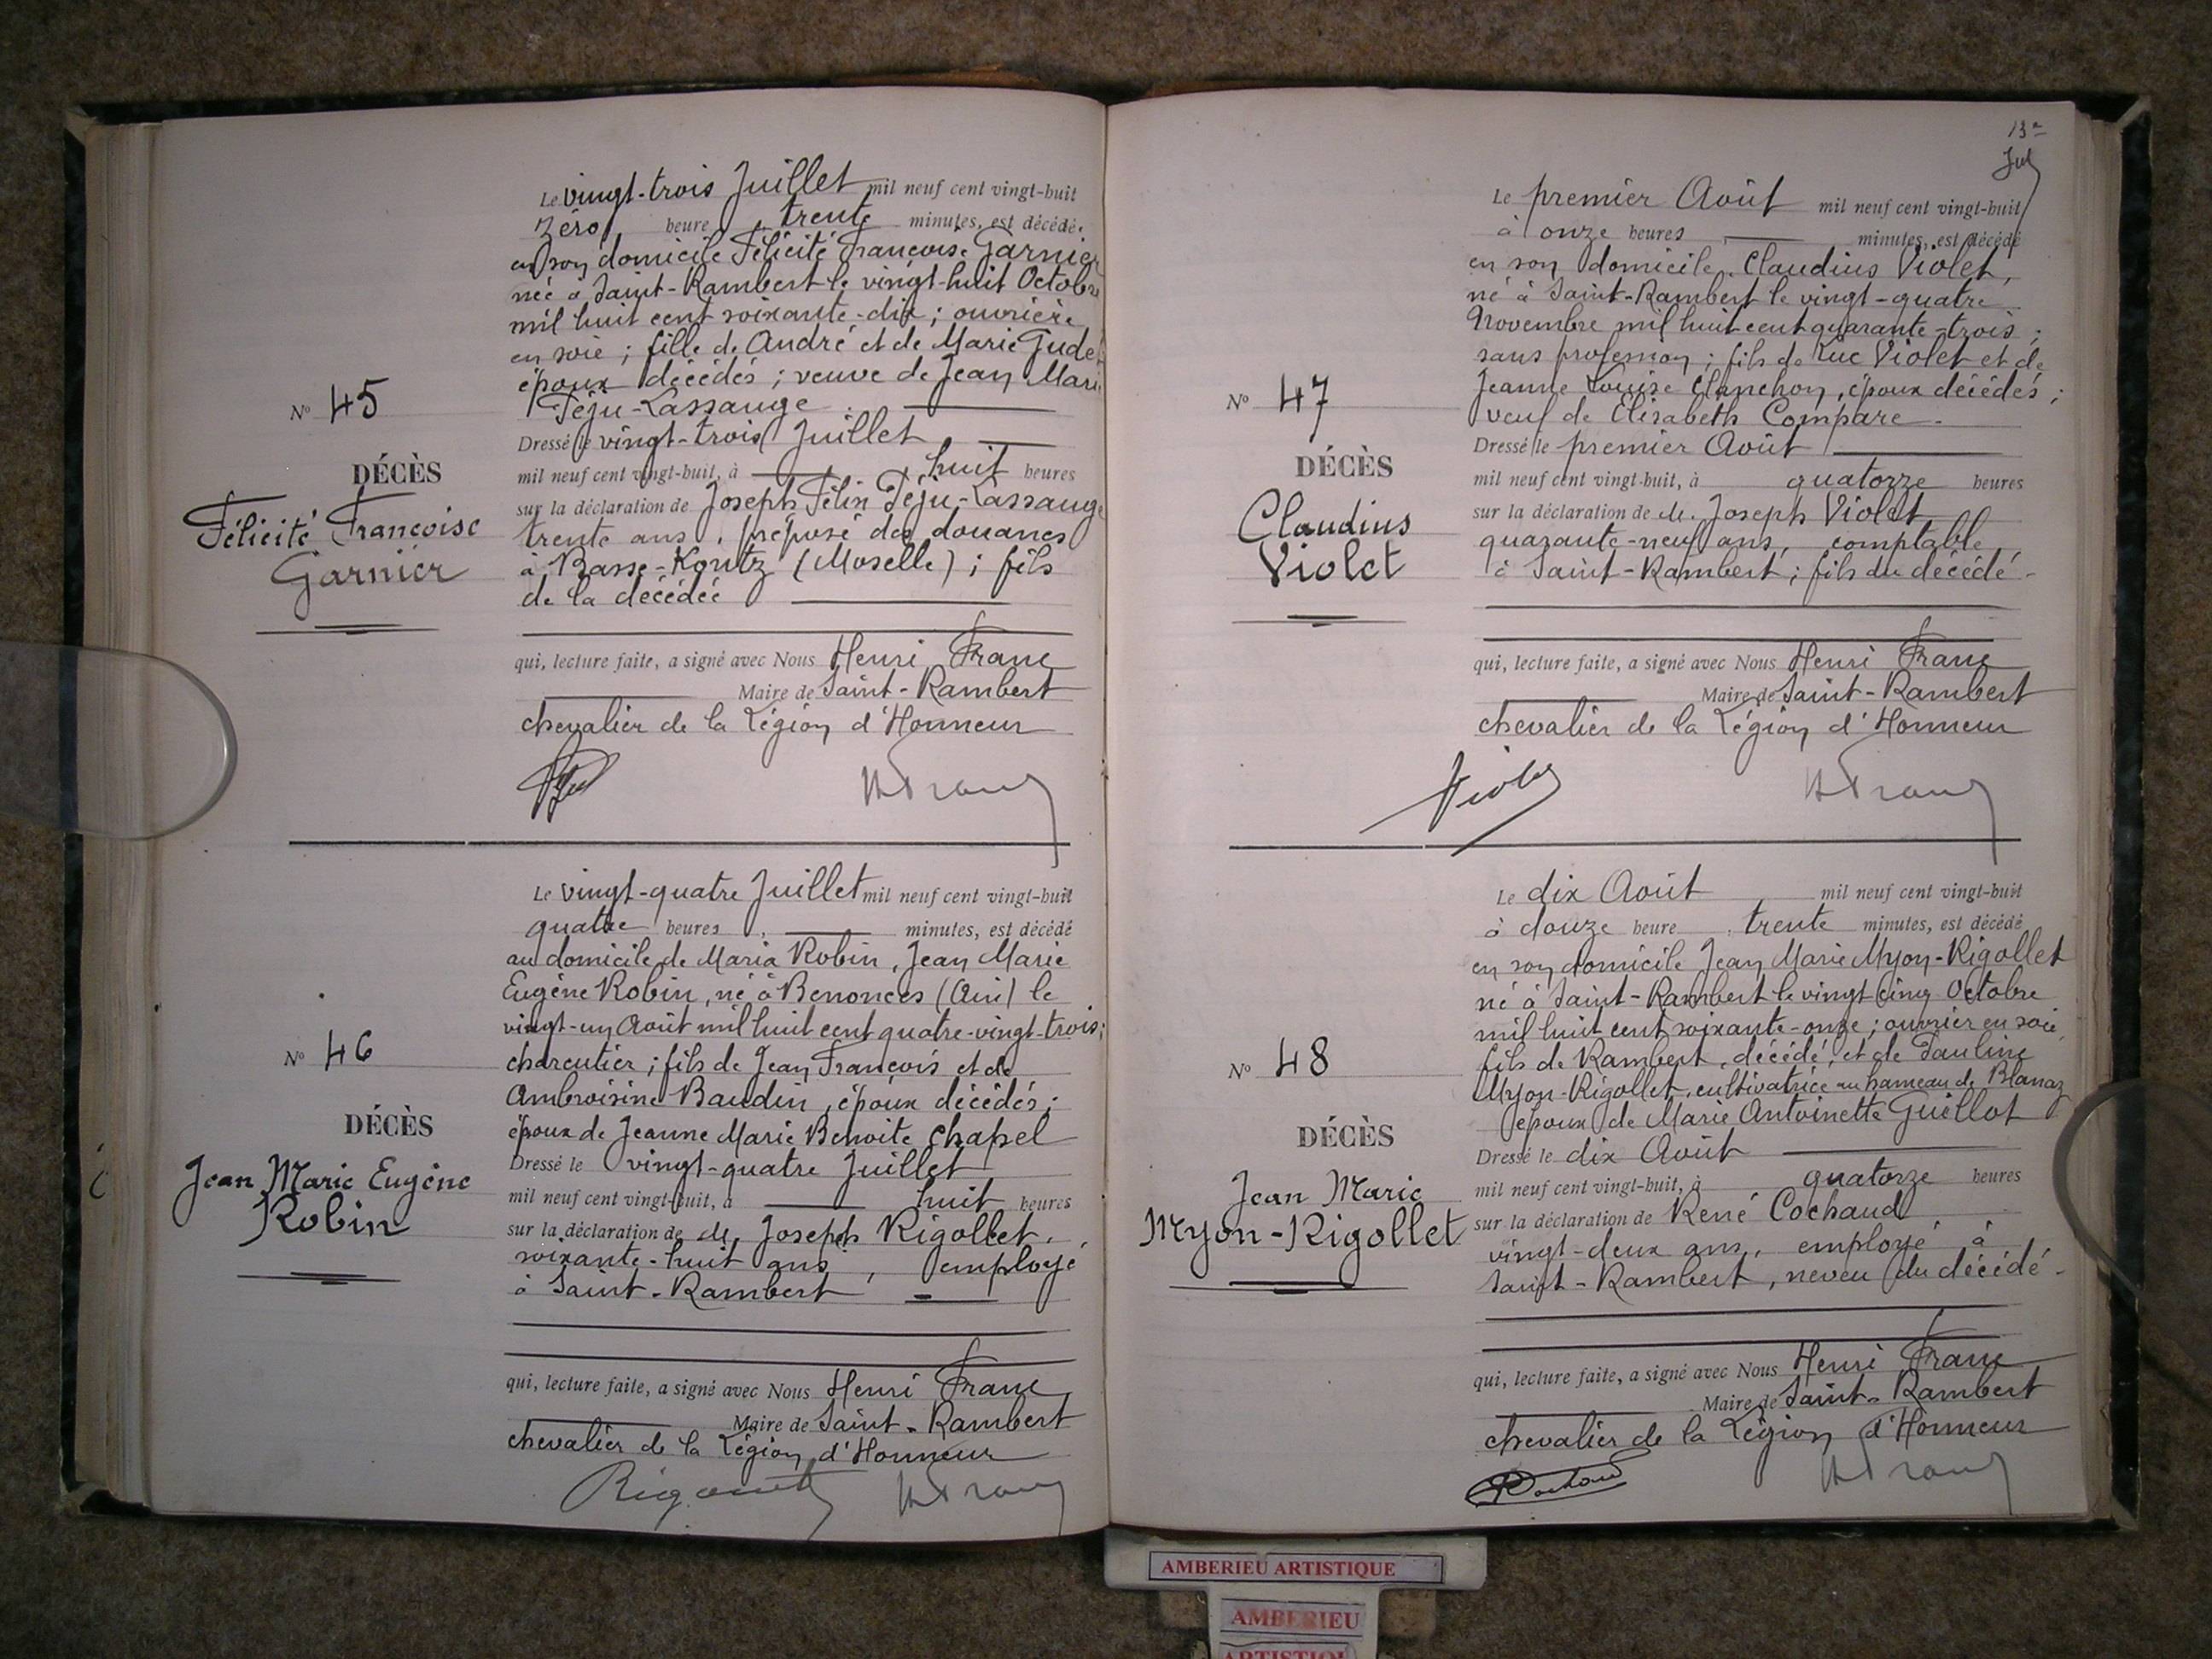 Le vingt-trois Juillet mil neuf cent vingt-huit
Zéro heure , trente minutes, est décédée
en son domicile Félicité Françoise Garnier
née à Saint-Rambert le vingt-huit Octobre
mil huit cent soixante-dix ; ouvrière
en soie ; fille de André et de Marie Gudet
époux décédés ; veuve de Jean Marie
Téju-Lassauge
Nº 45
Dressé le vingt-trois Juillet
DÉCÈS
mil neuf cent vingt-huit, à huit heures
Félicité Françoise
Garnier
sur la déclaration de Joseph Félix Téju-Lassauge
trente ans, préposé des douanes
à Basse-Kontz (Moselle) ; fils
de la décédée
qui, lecture faite, a signé avec Nous Henri Franc
Maire de Saint-Rambert
chevalier de la Légion d'Honneur
HFranc
Le vingt-quatre Juillet mil neuf cent vingt-huit
quatre heures , minutes, est décédé
au domicile de Maria Robin, Jean Marie
Eugène Robin, né à Benonces (Ain) le
vingt-un Août mil huit cent quatre-vingt-trois ;
charcutier ; fils de Jean François et de
Ambroisine Baudin, époux décédés ;
époux de Jeanne Marie Benoite Chapel
Nº 46
DÉCÈS
Jean Marie Eugène
Robin
Dressé le vingt-quatre Juillet
mil neuf cent vingt-huit, à huit heures
sur la déclaration de M. Joseph Rigollet,
soixante-huit ans, employé
à Saint-Rambert
qui, lecture faite, a signé avec Nous Henri Franc
Maire de Saint-Rambert
chevalier de la Légion d'Honneur
HFranc
13e
Le premier Août mil neuf cent vingt-huit
à onze heures , minutes, est décédé
en son domicile, Claudius Violet,
né à Saint-Rambert le vingt-quatre
Novembre mil huit cent quarante-trois ;
sans profession ; fils de Luc Violet et de
Jeanne Louise Clanchon, époux décédés ;
veuf de Elisabeth Compare.
Nº 47
DÉCÈS
Claudius
Violet
Dressé le premier Août
mil neuf cent vingt-huit, à quatorze heures
sur la déclaration de M. Joseph Violet
quarante-neuf ans, comptable
à Saint-Rambert ; fils du décédé.
qui, lecture faite, a signé avec Nous Henri Franc
Maire de Saint-Rambert
chevalier de la Légion d'Honneur
Violet
HFranc
Le dix Août mil neuf cent vingt-huit
à douze heure , trente minutes, est décédé
en son domicile Jean Marie Myon-Rigollet
né à Saint-Rambert le vingt cinq Octobre
mil huit cent soixante-onze ; ouvrier en soie
fils de Rambert, décédé, et de Pauline
Myon-Rigollet, cultivatrice au hameau de Blanaz
époux de Marie Antoinette Guillot
Nº 48
DÉCÈS
Jean Marie
Myon-Rigollet
Dressé le dix Août
mil neuf cent vingt-huit, à quatorze heures
sur la déclaration de René Cochaud
vingt-deux ans, employé à
Saint-Rambert, neveu du décédé.
qui, lecture faite, a signé avec Nous Henri Franc
Maire de Saint-Rambert
chevalier de la Légion d'Honneur
HFranc
AMBERIEU ARTISTIQUE
AMBERIEU
ARTISTIQUE